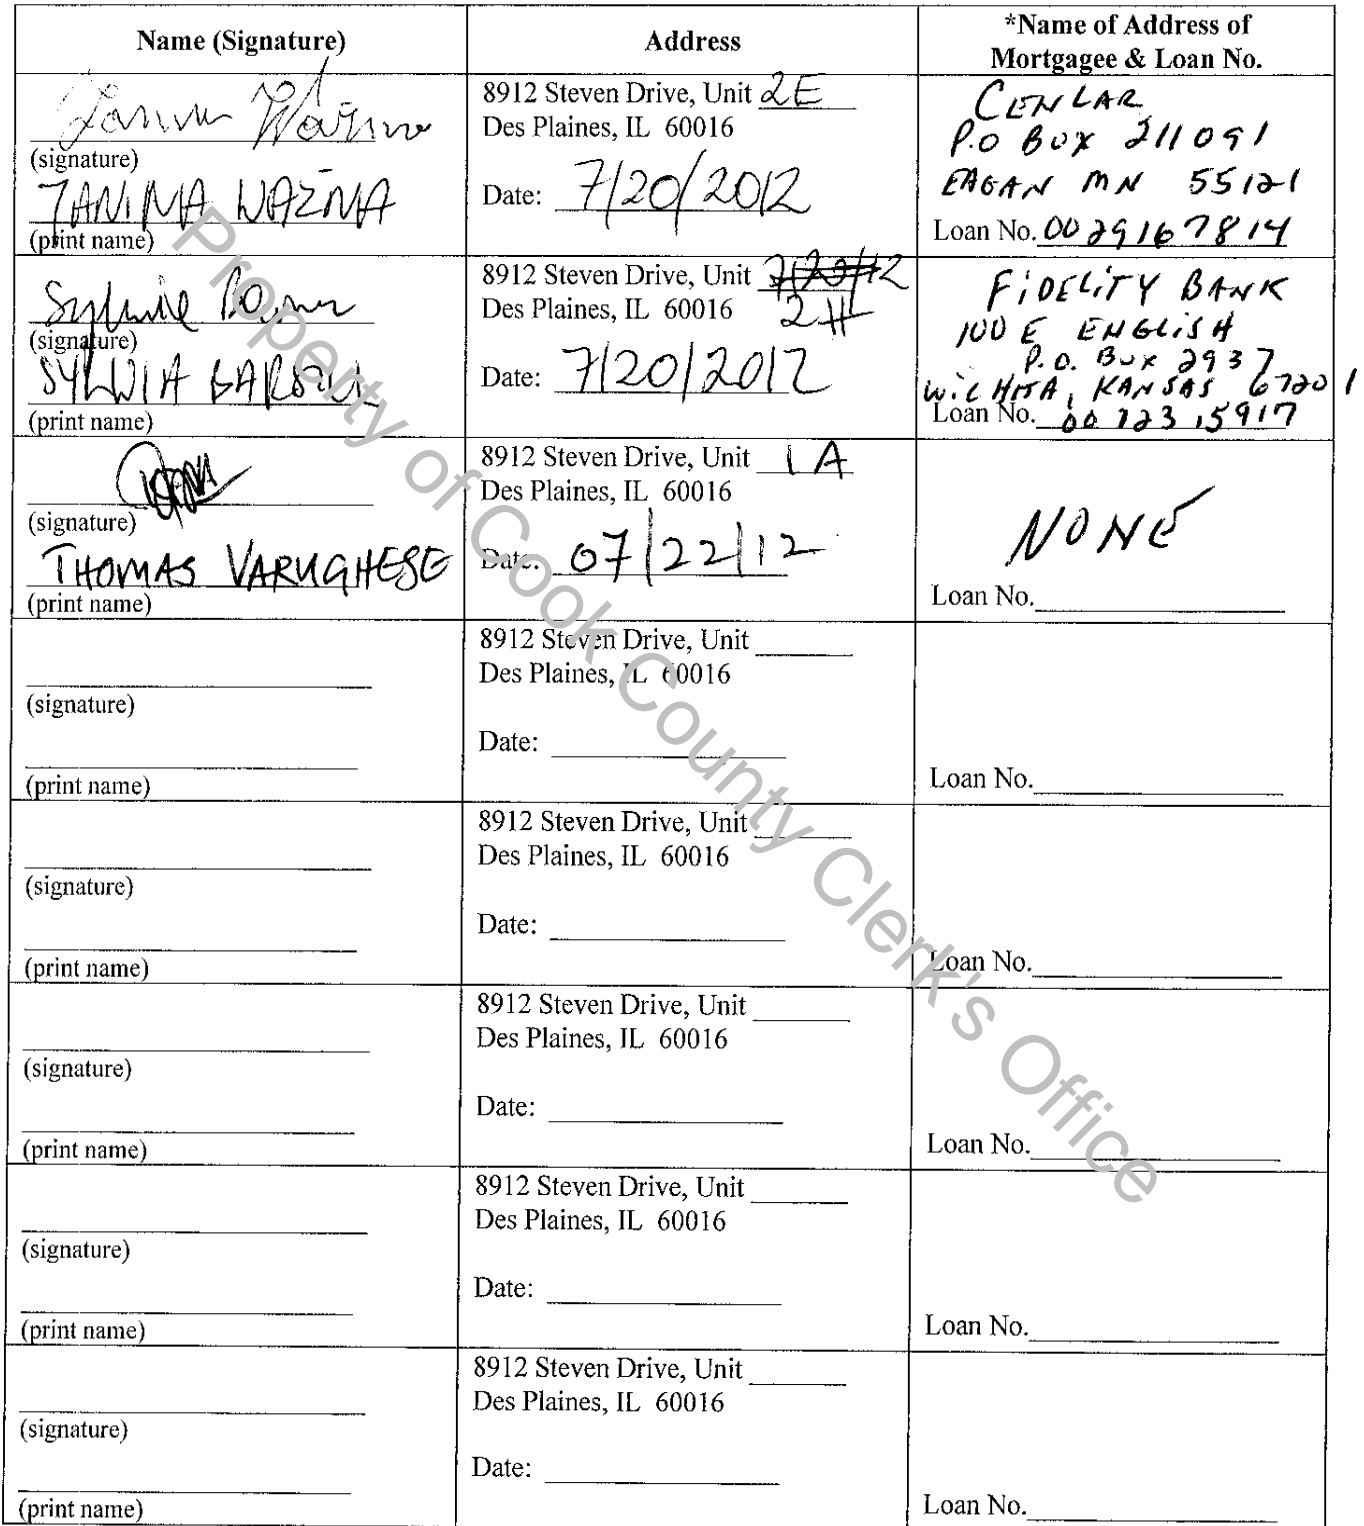 Name (Signature)
Address
*Name of Address of
Mortgagee & Loan No.
(signature)
JANINA WAŻNA
(print name)
8912 Steven Drive, Unit 2E
Des Plaines, IL 60016
Date: 7/20/2012
CENLAR
P.O BOX 211091
EAGAN MN 55121
Loan No. 0029167814
(signature)
SYLWIA
(print name)
8912 Steven Drive, Unit 7/20/12
Des Plaines, IL 60016 2H
Date: 7/20/2012
FIDELITY BANK
100 E ENGLISH
P.O. Box 2937
WICHITA, KANSAS 67201
Loan No. 00 723 15917
(signature)
THOMAS VARUGHESE
(print name)
8912 Steven Drive, Unit 1A
Des Plaines, IL 60016
Date: 07/22/12
NONE
Loan No.
(signature)
(print name)
8912 Steven Drive, Unit
Des Plaines, IL 60016
Date:
Loan No.
(signature)
(print name)
8912 Steven Drive, Unit
Des Plaines, IL 60016
Date:
Loan No.
(signature)
(print name)
8912 Steven Drive, Unit
Des Plaines, IL 60016
Date:
Loan No.
(signature)
(print name)
8912 Steven Drive, Unit
Des Plaines, IL 60016
Date:
Loan No.
(signature)
(print name)
8912 Steven Drive, Unit
Des Plaines, IL 60016
Date:
Loan No.
Property of Cook County Clerk's Office